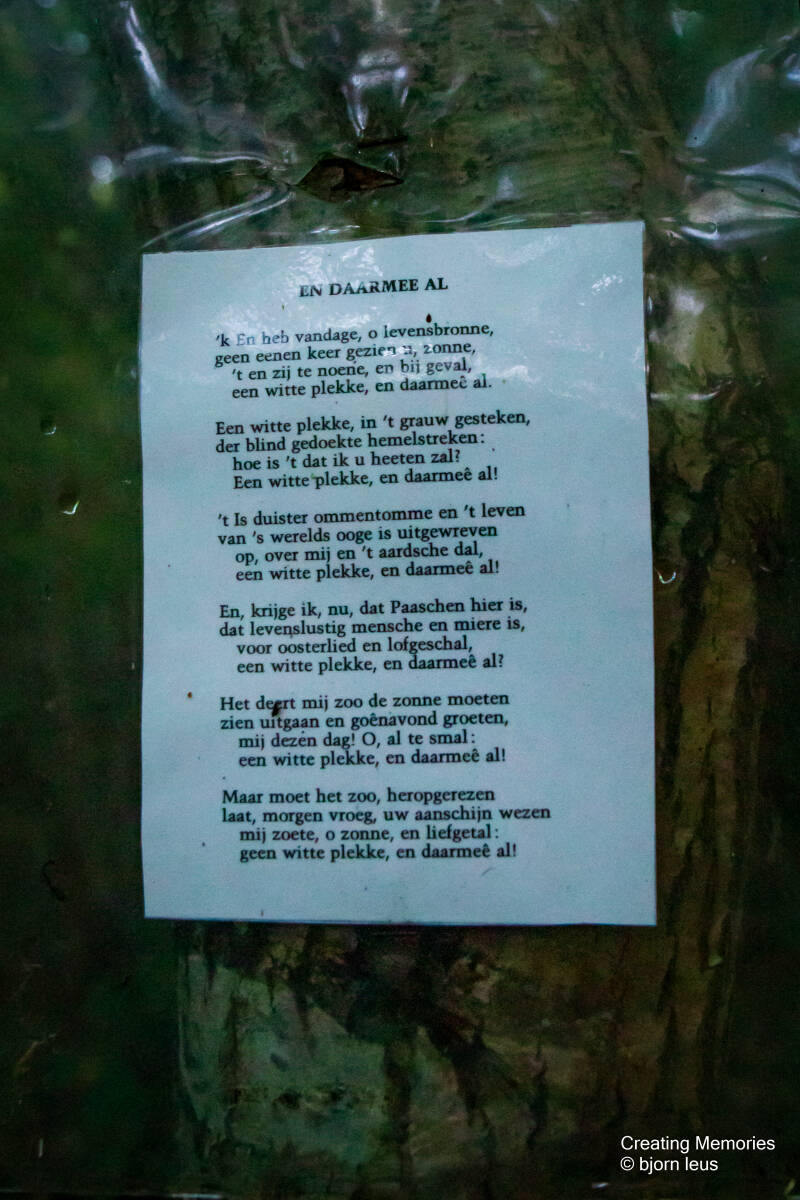 EN DAARMEE AL
'k En heb vandage, o levensbronne,
geen eenen keer gezien u, zonne,
't en zij te noene, en bij geval,
een witte plekke, en daarmeê al.
Een witte plekke, in 't grauw gesteken,
der blind gedoekte hemelstreken:
hoe is 't dat ik u heeten zal?
Een witte plekke, en daarmeê al!
't Is duister ommentomme en 't leven
van 's werelds ooge is uitgewreven
op, over mij en 't aardsche dal,
een witte plekke, en daarmeê al!
En, krijge ik, nu, dat Paaschen hier is,
dat levenslustig mensche en miere is,
voor oosterlied en lofgeschal,
een witte plekke, en daarmeê al?
Het deert mij zoo de zonne moeten
zien uitgaan en goênavond groeten,
mij dezen dag! O, al te smal:
een witte plekke, en daarmeê al!
Maar moet het zoo, heropgerezen
laat, morgen vroeg, uw aanschijn wezen
mij zoete, o zonne, en liefgetal:
geen witte plekke, en daarmeê al!
Creating Memories
© bjorn leus